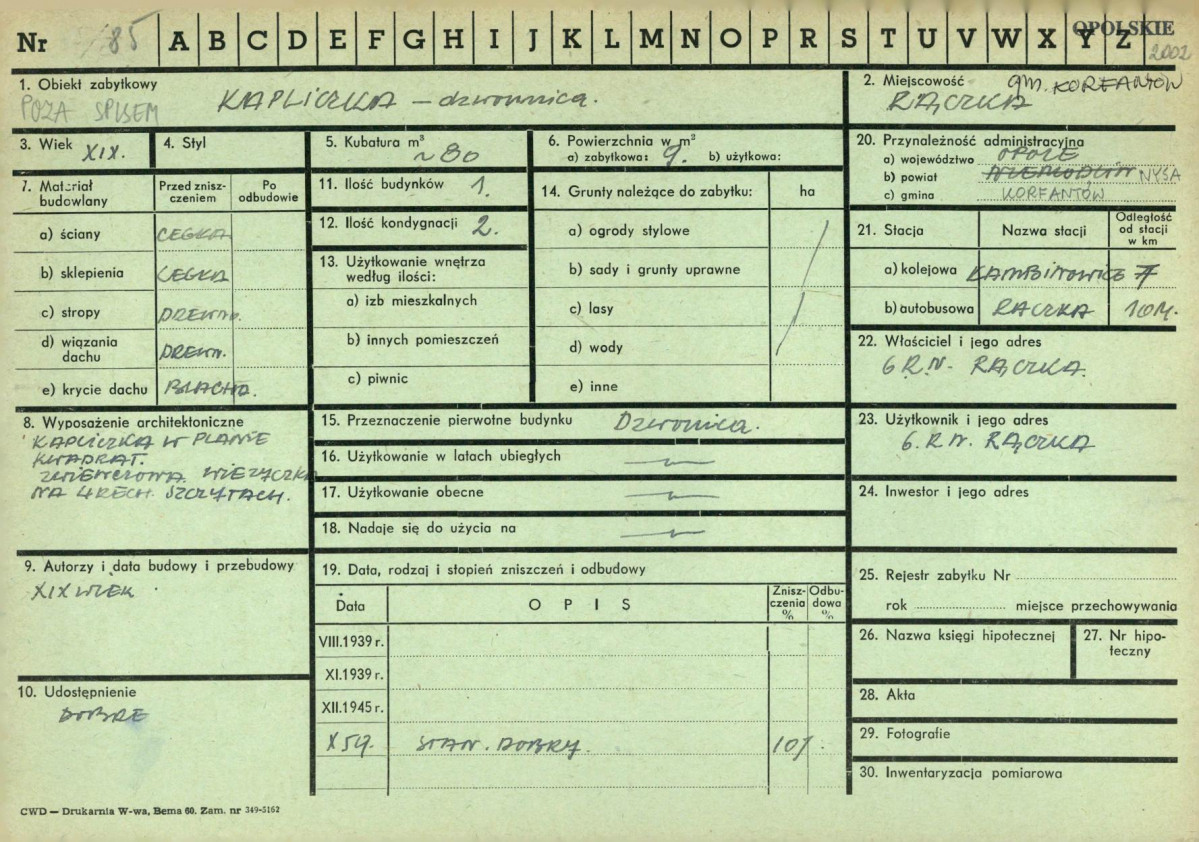 Nr 85 A B C D E F G H I J K L M N O P R S T U V W X Y Z OPOLSKIE
2002
1. Obiekt zabytkowy
POZA SPISEM
KAPLICZKA – dzwonnica.
2. Miejscowość gm. KORFANTÓW
RĄCZKA
3. Wiek XIX.
4. Styl
5. Kubatura m³
~ 80
6. Powierzchnia w m²
a) zabytkowa: 9. b) użytkowa:
20. Przynależność administracyjna
a) województwo OPOLE
b) powiat NIEMODLIN NYSA
c) gmina KORFANTÓW
7. Materiał budowlany
Przed zniszczeniem
Po odbudowie
a) ściany CEGŁA
b) sklepienia CEGŁA
c) stropy DREWN.
d) wiązania dachu DREWN.
e) krycie dachu BLACHA.
11. Ilość budynków 1.
12. Ilość kondygnacji 2.
13. Użytkowanie wnętrza
według ilości:
a) izb mieszkalnych
b) innych pomieszczeń
c) piwnic
14. Grunty należące do zabytku: ha
a) ogrody stylowe
b) sady i grunty uprawne
c) lasy
d) wody
e) inne
21. Stacja
Nazwa stacji
Odległość od stacji w km
a) kolejowa ŁAMBINOWICE 7
b) autobusowa RĄCZKA
22. Właściciel i jego adres
G.R.N. RĄCZKA.
8. Wyposażenie architektoniczne
KAPLICZKA W PLANIE
KWADRAT.
ZWIEŃCZONA WIEŻYCZKĄ
NA 4RECH SZCZYTACH.
15. Przeznaczenie pierwotne budynku Dzwonnica.
16. Użytkowanie w latach ubiegłych
17. Użytkowanie obecne
18. Nadaje się do użycia na
23. Użytkownik i jego adres
G.R.N. RĄCZKA
24. Inwestor i jego adres
9. Autorzy i data budowy i przebudowy
XIX WIEK
10. Udostępnienie
DOBRE
19. Data, rodzaj i stopień zniszczeń i odbudowy
Data
OPIS
Zniszczenia %
Odbudowa %
VIII.1939 r.
XI.1939 r.
XII.1945 r.
X 59. STAN. DOBRY.
25. Rejestr zabytku Nr
rok miejsce przechowywania
26. Nazwa księgi hipotecznej
27. Nr hipoteczny
28. Akta
29. Fotografie
30. Inwentaryzacja pomiarowa
CWD — Drukarnia W-wa, Bema 60. Zam. nr 349-5162